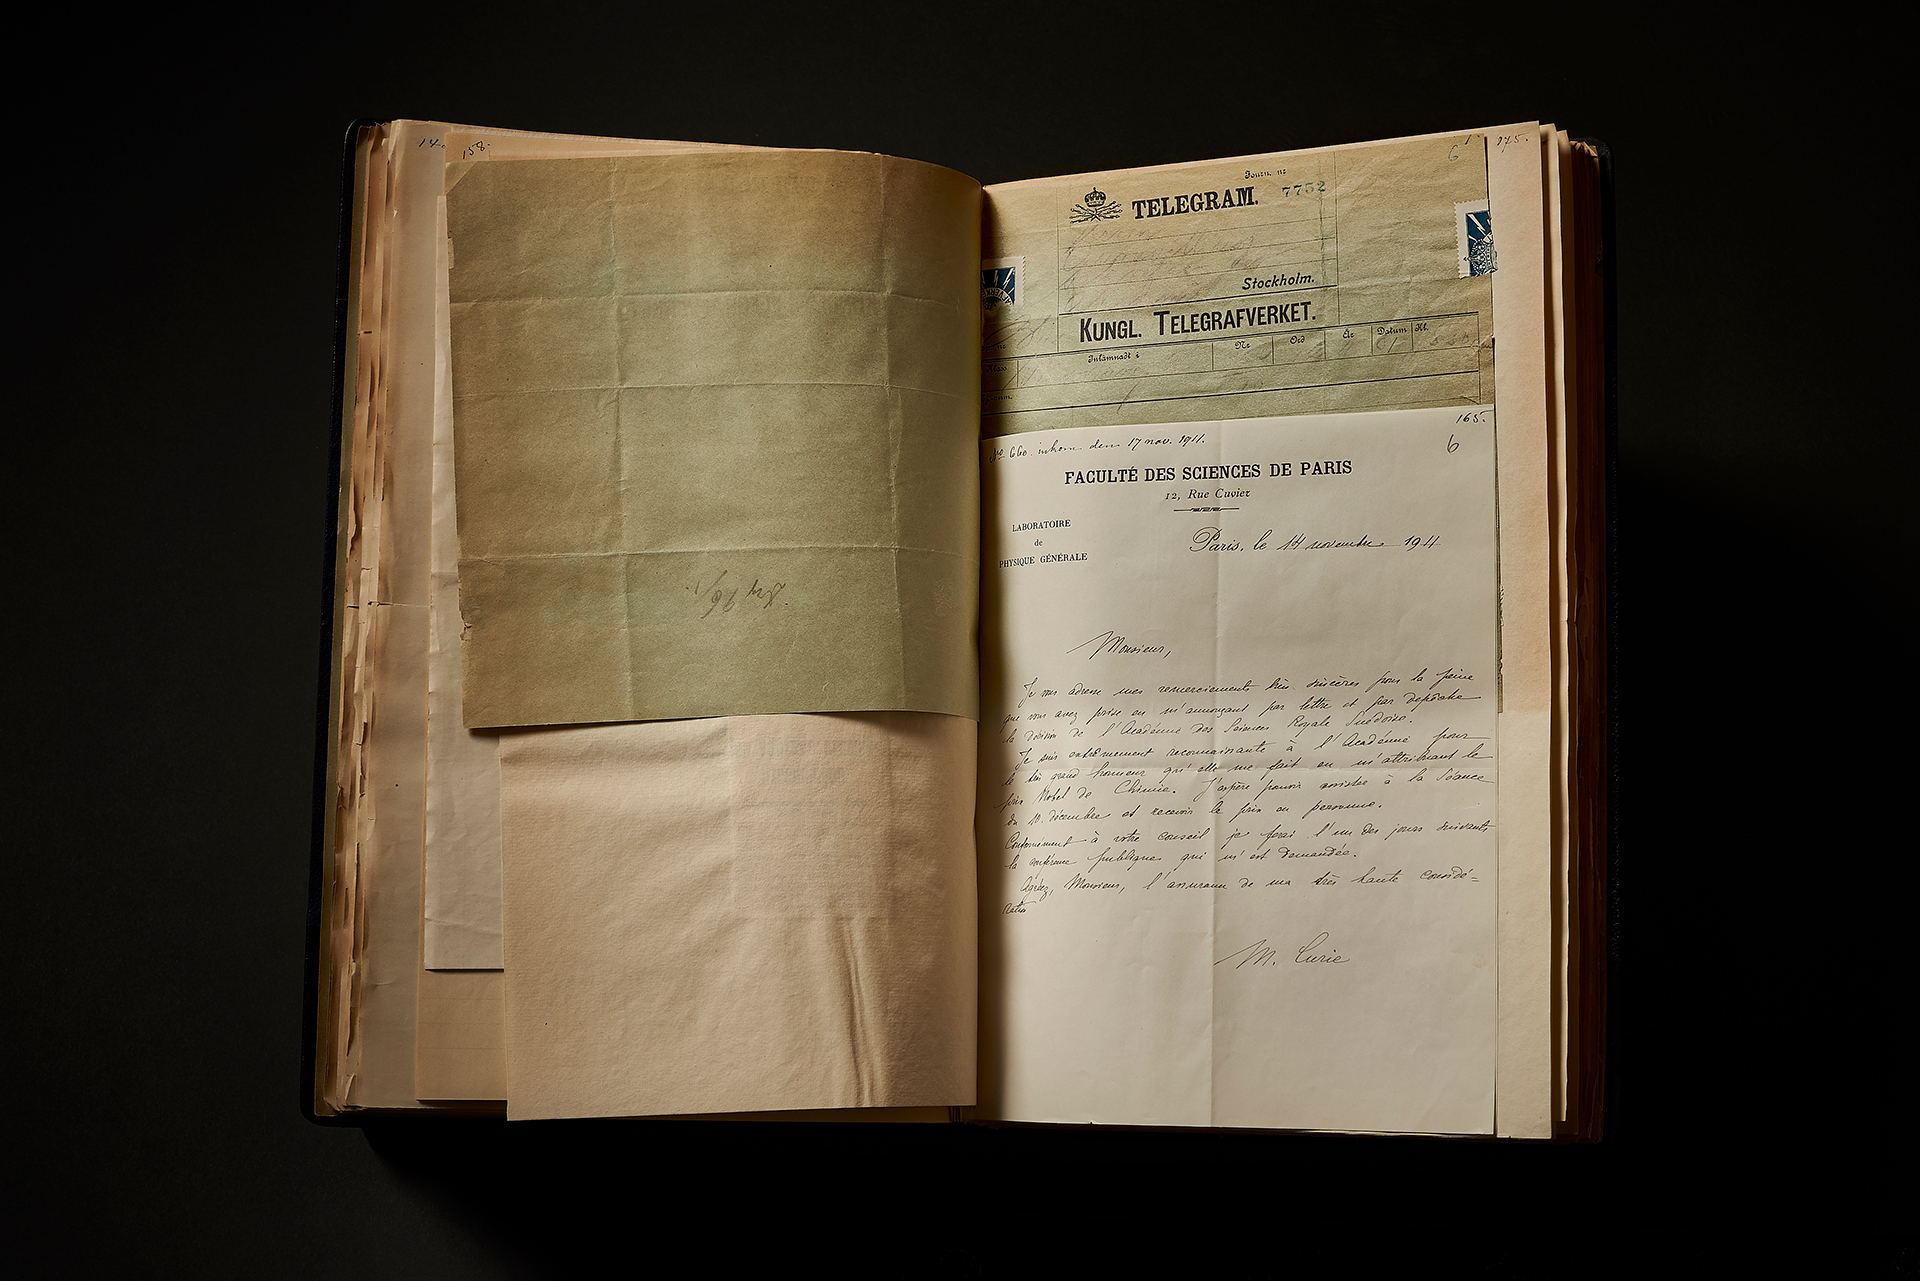 14
158.
6
1.
175.
Journ. nr
7752
TELEGRAM.
Stockholm.
KUNGL. TELEGRAFVERKET.
Inlämnadt i
Nr
Ord
År
Datum
Kl.
Klass
165.
No 660. inkom den 17 nov. 1911.
6
FACULTÉ DES SCIENCES DE PARIS
12, Rue Cuvier
LABORATOIRE
de
PHYSIQUE GÉNÉRALE
Paris, le 14 novembre 1911
Monsieur,
Je vous adresse mes remerciements très sincères pour la peine
que vous avez prise en m'annonçant par lettre et par dépêche
la décision de l'Académie des Sciences Royale Suédoise.
Je suis extrêmement reconnaissante à l'Académie pour
le très grand honneur qu'elle me fait en m'attribuant le
prix Nobel de Chimie. J'espère pouvoir assister à la Séance
du 10 décembre et recevoir le prix en personne.
Conformément à votre conseil je ferai l'un des jours suivants
la conférence publique qui m'est demandée.
Agréez, Monsieur, l'assurance de ma très haute considé=
ration
M. Curie